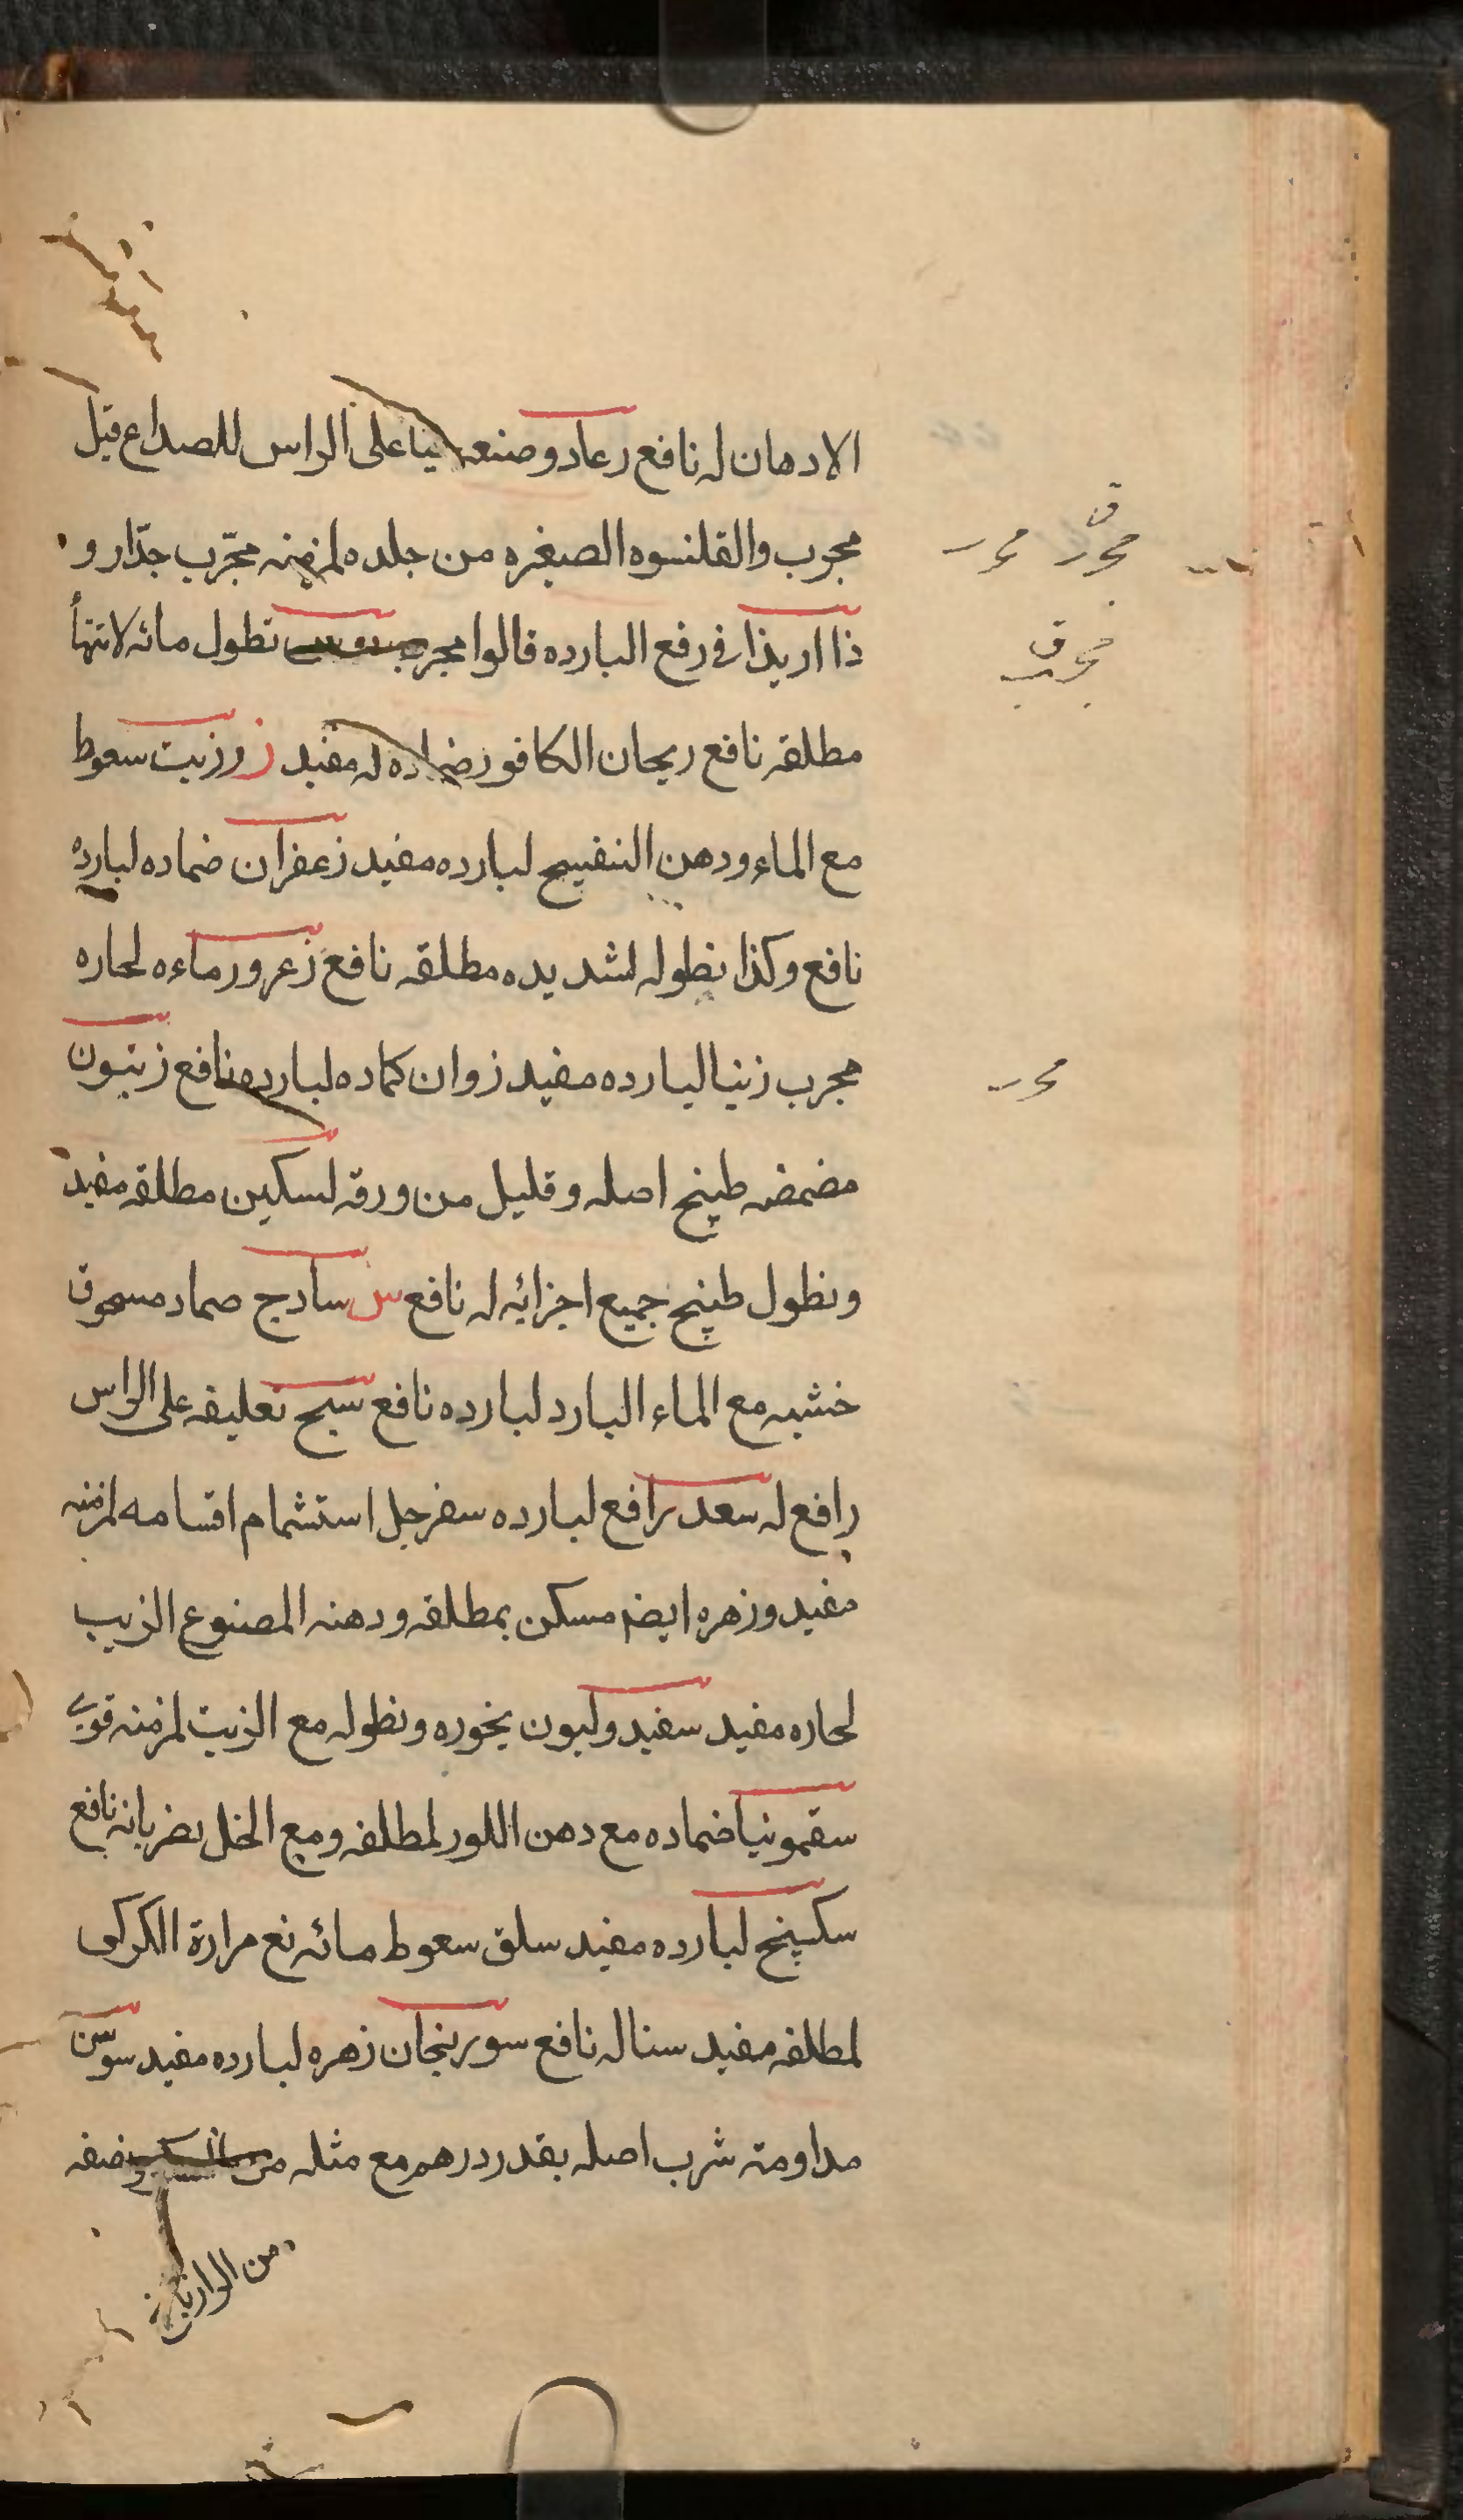 الادهان له نافع رعاد وضعه على الراس للصداع قيل
مجرب والقلنسوه الصغيره من جلده لمزمنه مجرّب جدّا رو
ذا اريذا في رفع البارده قالوا مجرب نطول مائه لانتهأ
مطلقه نافع ريحان الكافور ضماده له مفيد ز رزيت سعوط
مع الماء ودهن البنفسج لبارده مفيد زعفران ضماده لبارده
نافع وكذا نطوله لشديده مطلقه نافع زعرور ماءه لحاره
مجرب زنيا لبارده مفيد زوان كماده لبارده نافع زيتون
مضمضه طبيخ اصله وقليل من ورقه لسكين مطلقه مفيد
ونطول طبيخ جميع اجزائه له نافع س سادج صماد مسحوق
خشبه مع الماء البارد لبارده نافع سبج تعليقه على الراس
رافع له سعد رافع لبارده سفرجل استشمام اقسامه لمزمنه
مفيد وزهره ايضا مسكن بمطلقه ودهنه المصنوع الزيب
لحاره مفيد سفيد وليون بخوره ونطوله مع الزيت لمزمنه قوي
سقمونيا ضماده مع دهن اللور لمطلقه ومع الخل بضربانه نافع
سكبينج لبارده مفيد سلق سعوط مائه مع مرارة الكركى
لمطلقه مفيد سنا له نافع سورنجان زهره لبارده مفيد سوسن
مداومة شرب اصله بقدر درهم مع مثله من نصفه
من
مجرب
مجرب
مجرب